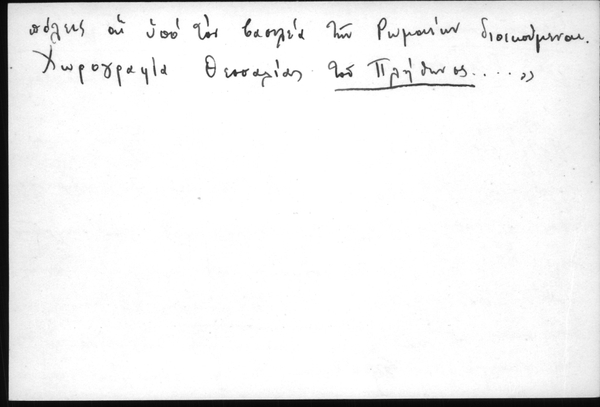 πόλεις αἱ ὑπὸ τὸν βασιλέα τῶν Ρωμαίων διοικούμεναι.
Χωρογραφία Θεσσαλίας τοῦ Πλήθωνος.....»